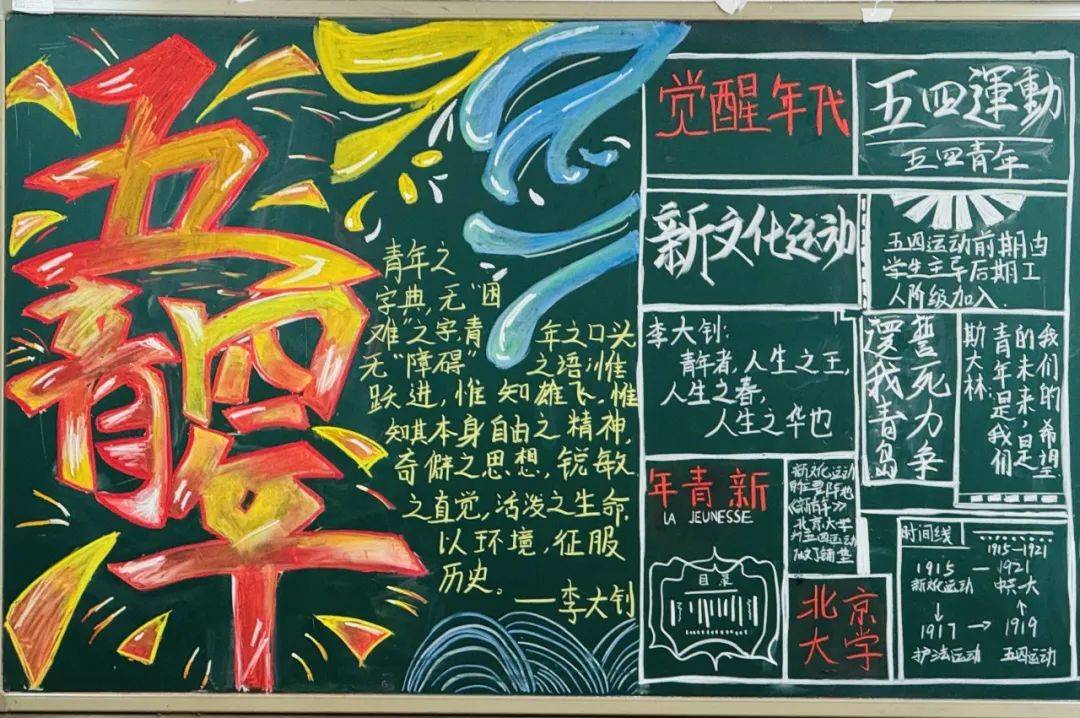 五四
青年
青年之
字典,无"困
难"之字,青 年之口头
无"障碍" 之语,惟
跃进,惟知雄飞,惟
知其本身自由之精神,
奇僻之思想,锐敏
之直觉,活泼之生命,
以环境,征服
历史。
—李大钊
觉醒年代
五四運動
五四青年
新文化运动
五四运动前期由
学生主导后期工
人阶级加入.
李大钊:
青年者,人生之王,
人生之春,
人生之华也
誓死力争
还我青岛
我们的希望
的未来,是
青年是我们
斯大林:
年青新
LA JEUNESSE
目录
新文化运动
《新青年》
北京大学
为五四运动
做了铺垫
北京
大学
时间线
1915—1921
1915 — 1921
新文化运动 中共一大
↓ ↑
1917 → 1919
护法运动 五四运动